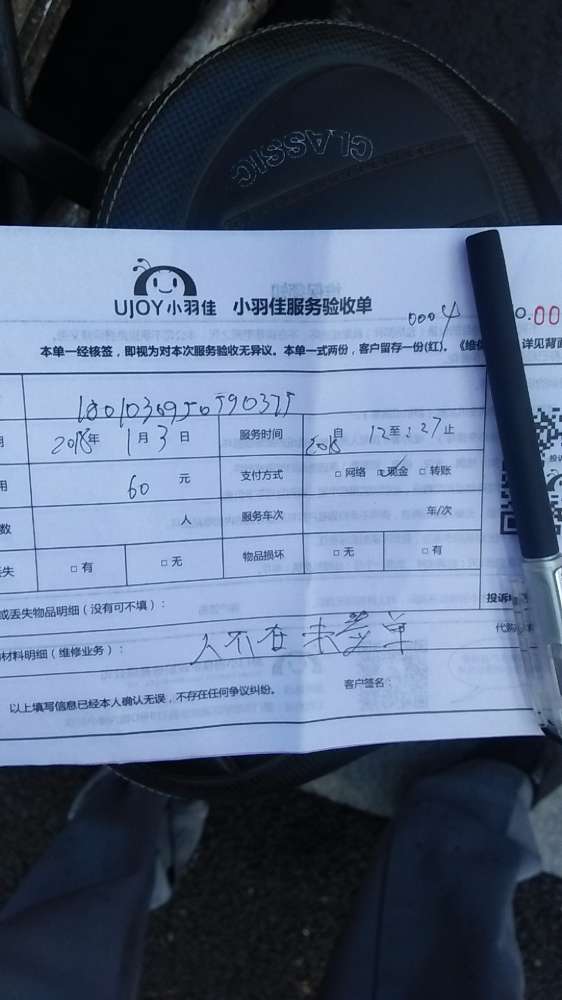 CLASSIC
UJOY小羽佳 小羽佳服务验收单
0004 0.00
本单一经核签，即视为对本次服务验收无异议。本单一式两份，客户留存一份(红)。《维 详见背面
1801030950590375
期 2018年 1月3日 服务时间 自 2018 12至:27止
用 60 元 支付方式 □ 网络 □ 现金 □ 转账
数 人 服务车次 年/次
丢失 □ 有 □ 无 物品损坏 □ 无 □ 有
或丢失物品明细（没有可填）： 投诉
材料明细（维修业务）： 人不在未签单 代购
以上填写信息已经本人确认无误，不存在任何争议纠纷。 客户签名：